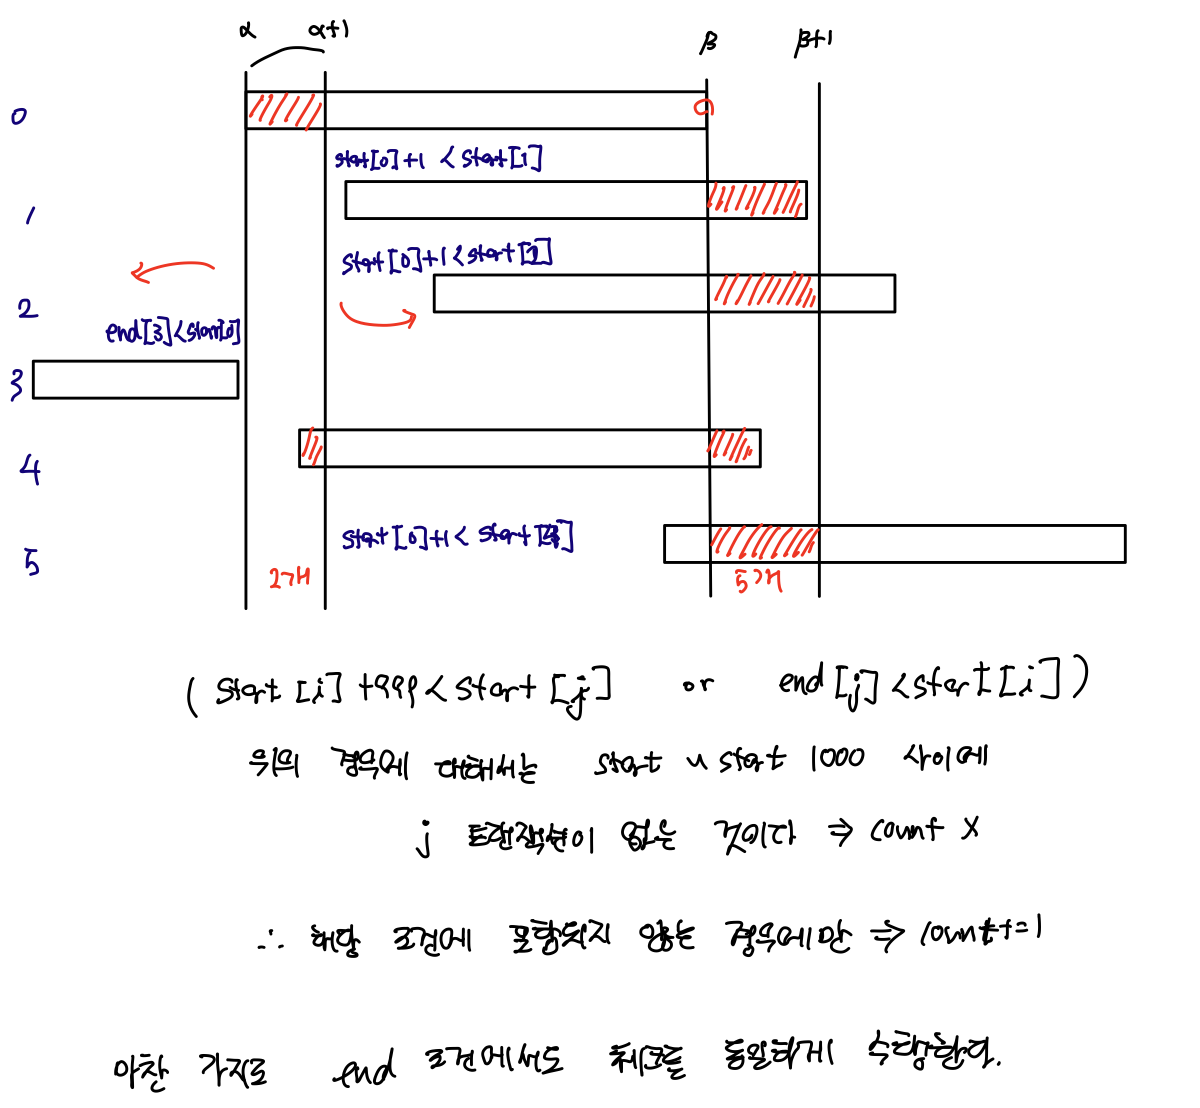 α α+1 β β+1
0
start[0]+1 < start[1]
1
start[0]+1 < start[2]
2
end[3] < start[0]
3
4
start[0]+1 < start[5]
5
2개 5개
( start [i] +999 < start [j] or end[j] < start[i] )
위의 경우에 대해서는 start ~ start 1000 사이에
j 트랜잭션이 없는 것이다 ⇒ count X
∴ 해당 조건에 포함되지 않는 경우에만 ⇒ count+=1
마찬 가지로 end 조건에서도 체크를 동일하게 수행한다.